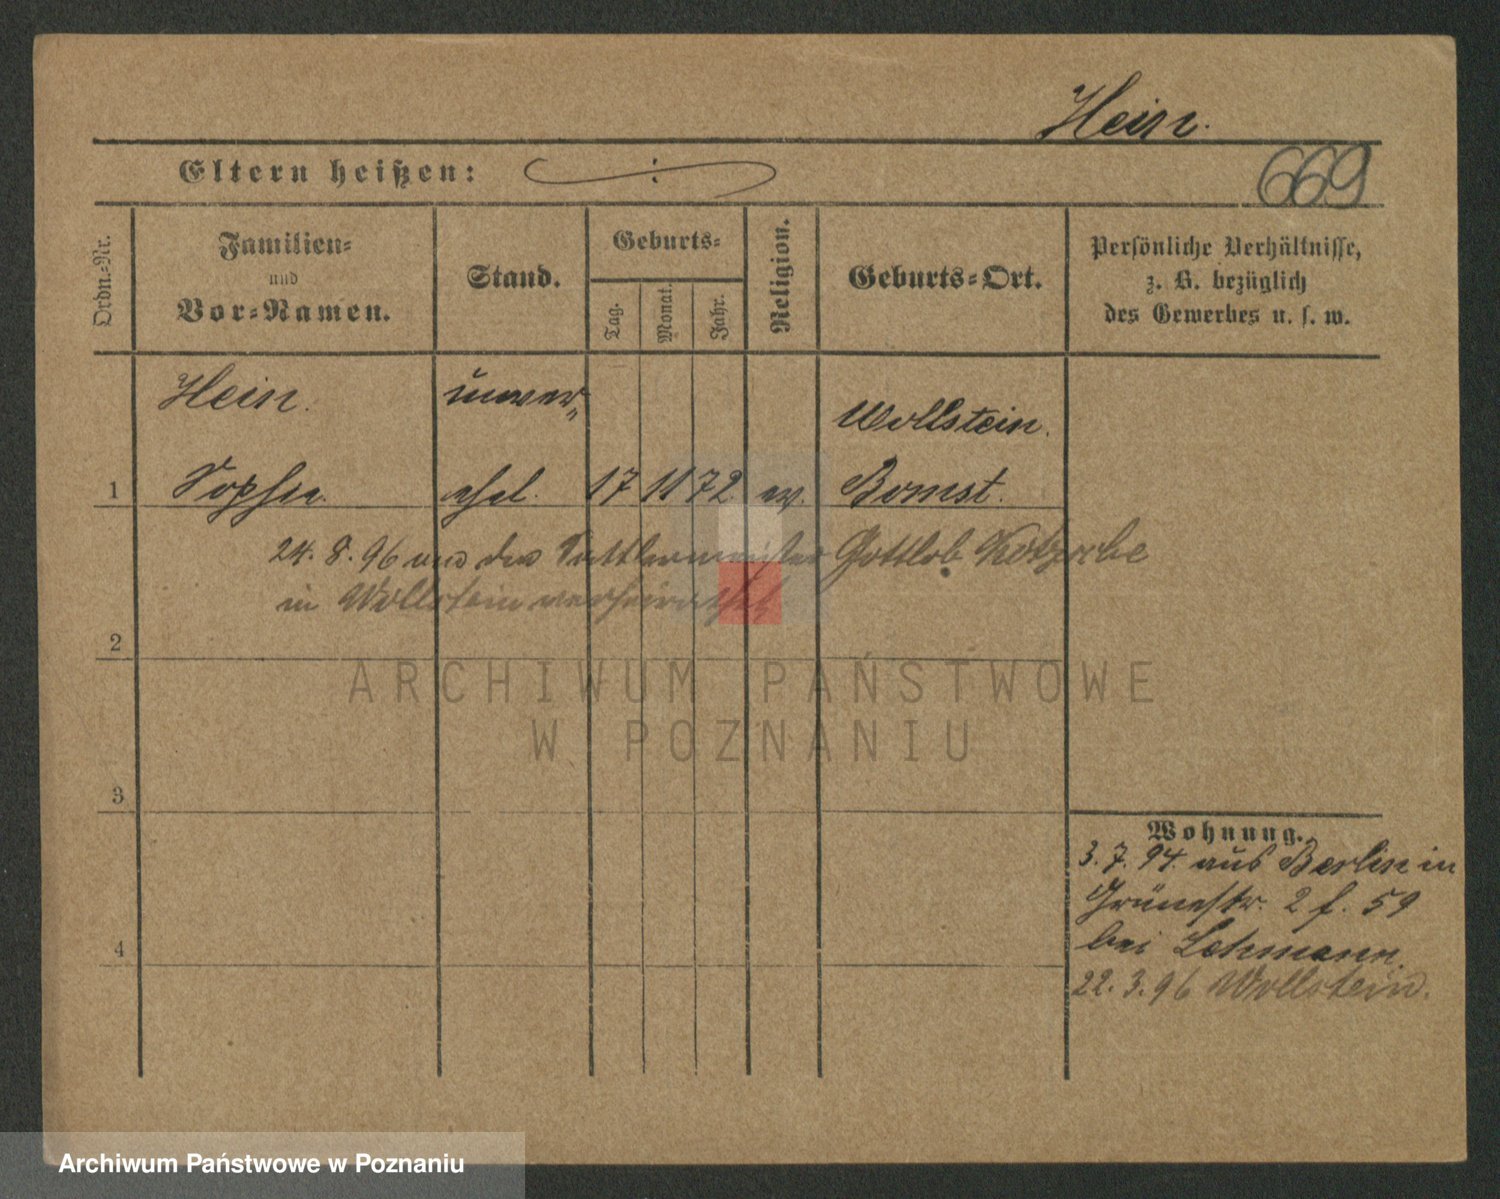 Hein.
Eltern heißen:
669
Ordn.-Nr.
Familien-
und
Vor-Namen.
Stand.
Geburts-
Tag.
Monat.
Jahr.
Religion.
Geburts-Ort.
Persönliche Verhältnisse,
z. B. bezüglich
des Gewerbes u. s. w.
Hein. unver-
Wollstein.
1 Sophie. ehel. 17 11 72 ev. Bomst.
24. 8. 96 den Sattlermeister Gottlob
in Wollstein verheirathet
2
ARCHIWUM PAŃSTWOWE
W POZNANIU
3
Wohnung.
3. 7. 94. aus Berlin in
Grünestr. 2 f. 59
4 bei Lehmann.
22. 3. 96 Wollstein.
Archiwum Państwowe w Poznaniu